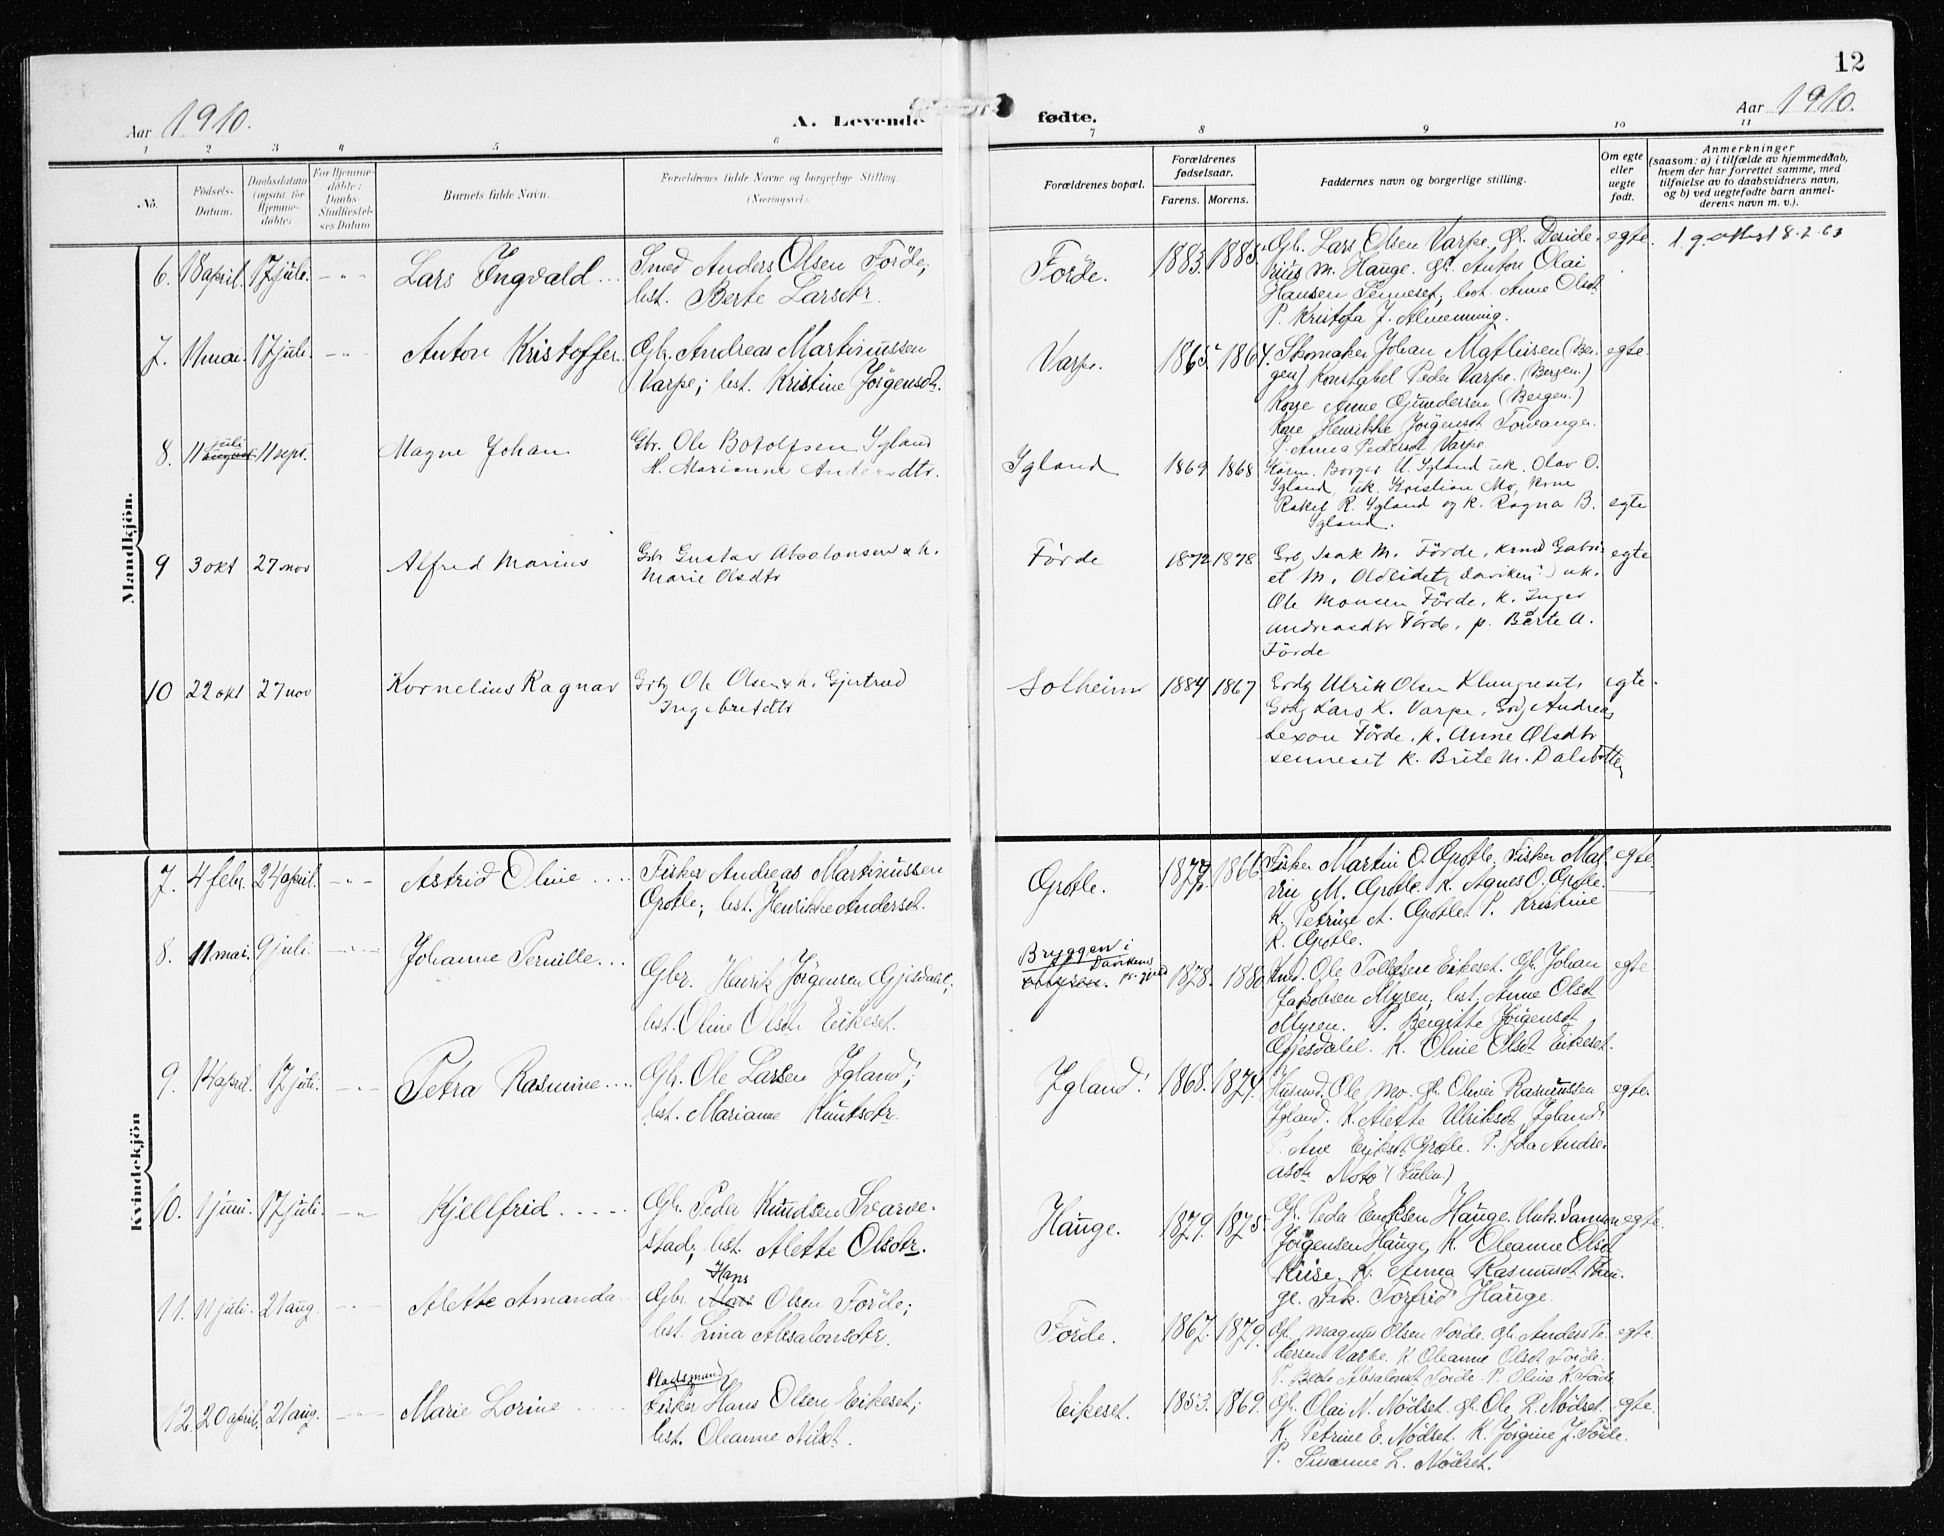 12
Aar 1910.
A. Levende fødte.
Aar 1910.
1 2 3 4 5 6 7 8 9 10 11
No.
Födsels-
Datum.
Daabsdatum
(ogsaa for
Hjemme-
döbte)
For Hjemme-
döbte:
Daabs-
Stadfæstel-
ses Datum
Barnets fulde Navn.
Forældrenes fulde Navne og borgerlige Stilling
(Næringsvei).
Forældrenes bopæl.
Forældrenes
fødselsaar.
Farens. Morens.
Faddernes navn og borgerlige stilling.
Om egte
eller
uegte
født.
Anmerkninger
(saasom: a) i tilfælde av hjemmedaab,
hvem der har forrettet samme, med
tilføielse av to daabsvidners navn,
og b) ved uegtefødte barn anmel-
derens navn m. v.).
Mandkjön.
6. 18 april. 17 juli. - " - Lars Ingvald ...
Smed Anders Olsen Förde;
hst. Berte Larsdtr.
Förde. 1883. 1885.
Gb. Lars Olsen Varpe. Gb. Deside-
rius M. Hauge. Gb. Anton Olai
Hansen Senneset, hst. Anne Olsdt
P. Kristofa J. Almenning.
egte.
7. 11 mai. 17 juli. - " - Anton Kristoffer.
Gbr. Andreas Martinussen
Varpe; hst. Kristine Jörgensdtr.
Varpe. 1865. 1864.
Skomaker Johan Mathisen (Ber-
gen) Konstabel Peder Varpe. (Bergen.)
Kone Anne Gundersen (Bergen.)
Kone Henrikke Jörgensdt
P. Anna Pedersdt Varpe
egte.
8. 11 juli august 11 sept. Magne Johan
Gbr. Ole Botolfsen Igland
H. Marianne Andersdtr.
Igland 1869 1868
Borger U. Igland uk. Olav O.
Igland, uk. Kristian Mo, Kone
Rakel R. Igland og K. Ragna B.
Igland.
egte
9 3 okt 27 nov Alfred Marius
Gbr Gustav Absalonsen & h.
Marie Olsdtr
Förde 1872 1878
Grb. Isak M. Förde, kmd Gabri-
el M. Oldeidet, Daviken) uk.
Ole Monsen Förde, k. Inger
Andreasdtr Förde, p. Berte A.
Förde
egte
10 22 okt 27 nov Kornelius Ragnar
Grbr Ole Olsen & h. Gjertrud
Ingebretdtr
Solheim 1884 1867
Grbr Ulrik Olsen Klungreset,
Grbr Lars K. Varpe, Grbr Andreas
Lexon Förde. k. Anne Olsdtr
Senneset k. Brite M. Dalsbotten
egte.
Kvindekjön
7. 4 febr. 24 april. - " - Astrid Oline ....
Fisker Andreas Martinussen
Grotle; hst. Henrikke Andersdt.
Grotle. 1879. 1866.
Fisker Martin O. Grotle. Fisker Mal-
vin M. Grotle. K. Agnes O. Grotle.
K. Petrine A. Grotle. P. Kristine
K. Grotle.
egte.
8. 11 mai. 9 juli. Johanne Pernille...
Gbr. Henrik Jörgensen Gjesdahl;
hst. Oline Olsdt Eikeset.
Bryggen i
Davikens
pr.gjeld
Myren.
1878. 1880
Kmd. Ole Tollefsen Eikeset. Gb. Johan
Jakobsen Myren, hst. Anne Olsdt
Myren. P. Bergitte Jörgensdt
Gjesdahl. K. Oline Olsdt Eikeset.
egte.
9. 14 april. 17 juli. - " - Petra Rasmine....
Gbr. Ole Larsen Igland;
hst. Marianne Knutsdtr.
Igland. 1868. 1874.
Husmd. Ole Mo. Gb. Oliver Rasmussen
Igland. K. Alette Ulriksdt Igland.
P. Ane Eriksdt Grotle. P. Ida Andre-
asdtr Notö (Gulen)
egte.
10. 1 juni. 17 juli. - " - Kjellfrid .....
Gbr. Peder Knudsen Svarve-
stad; hst. Alette Olsdtr.
Hauge. 1879. 1875.
Gb. Peder Enoksen Hauge. Unk. Samson
Jörgensen Hauge, K. Oleanne Olsdt
K. Anna Rasmusdt Hau-
ge. Torfrid Hauge.
egte.
11. 11 juli. 21 aug. - " - Alette Amanda..
Gbr. Hans Olsen Förde;
hst. Lina Absalonsdtr.
Förde. 1867. 1879.
Gb. Magnus Olsen Förde. Gb. Anders Pe-
dersen Varpe. K. Oleanne Olsdt Förde.
P. Berte Absalonsdt Förde. P. Oline K. Förde
egte.
12. 20 april. 21 aug. - " - Marie Lorine ....
Pladsmand
Fisker Hans Olsen Eikeset;
hst. Oleanne Nilsdt.
Eikeset. 1853. 1869.
Gb. Olai N. Nödset. Gb. Ole L. Nödset.
K. Petrine E. Nödset. K. Jörgine J. Förde.
P. Susanne L. Nödset.
egte.